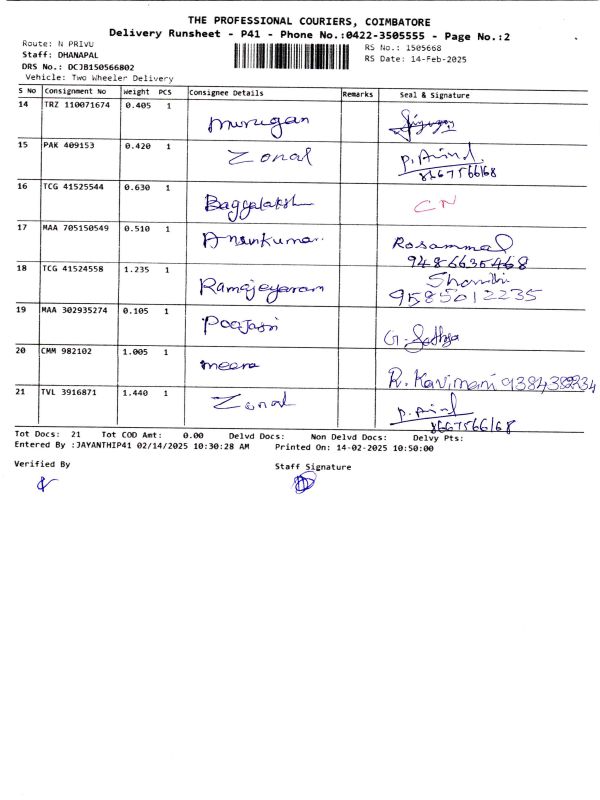 THE PROFESSIONAL COURIERS, COIMBATORE
Delivery Runsheet - P41 - Phone No.:0422-3505555 - Page No.:2
Route: N PRIVU
RS No.: 1505668
Staff: DHANAPAL
RS Date: 14-Feb-2025
DRS No.: DCJB150566802
Vehicle: Two Wheeler Delivery
S No Consignment No Weight PCS Consignee Details Remarks Seal & Signature
14 TRZ 110071674 0.405 1 Murugan
15 PAK 409153 0.420 1 Zonal P. Arind. 8667566168
16 TCG 41525544 0.630 1 Baggalaksh CN
17 MAA 705150549 0.510 1 Rosammal 9486635468
18 TCG 41524558 1.235 1 Ramajeyaram Shanthi 9585012235
19 MAA 302935274 0.105 1 Poojasri G. Sathya
20 CMM 982102 1.005 1 meera R. Kavimani
21 TVL 3916871 1.440 1 Zonal P. Arind 8667566168
Tot Docs: 21 Tot COD Amt: 0.00 Delvd Docs: Non Delvd Docs: Delvy Pts:
Entered By :JAYANTHIP41 02/14/2025 10:30:28 AM Printed On: 14-02-2025 10:50:00
Verified By Staff Signature